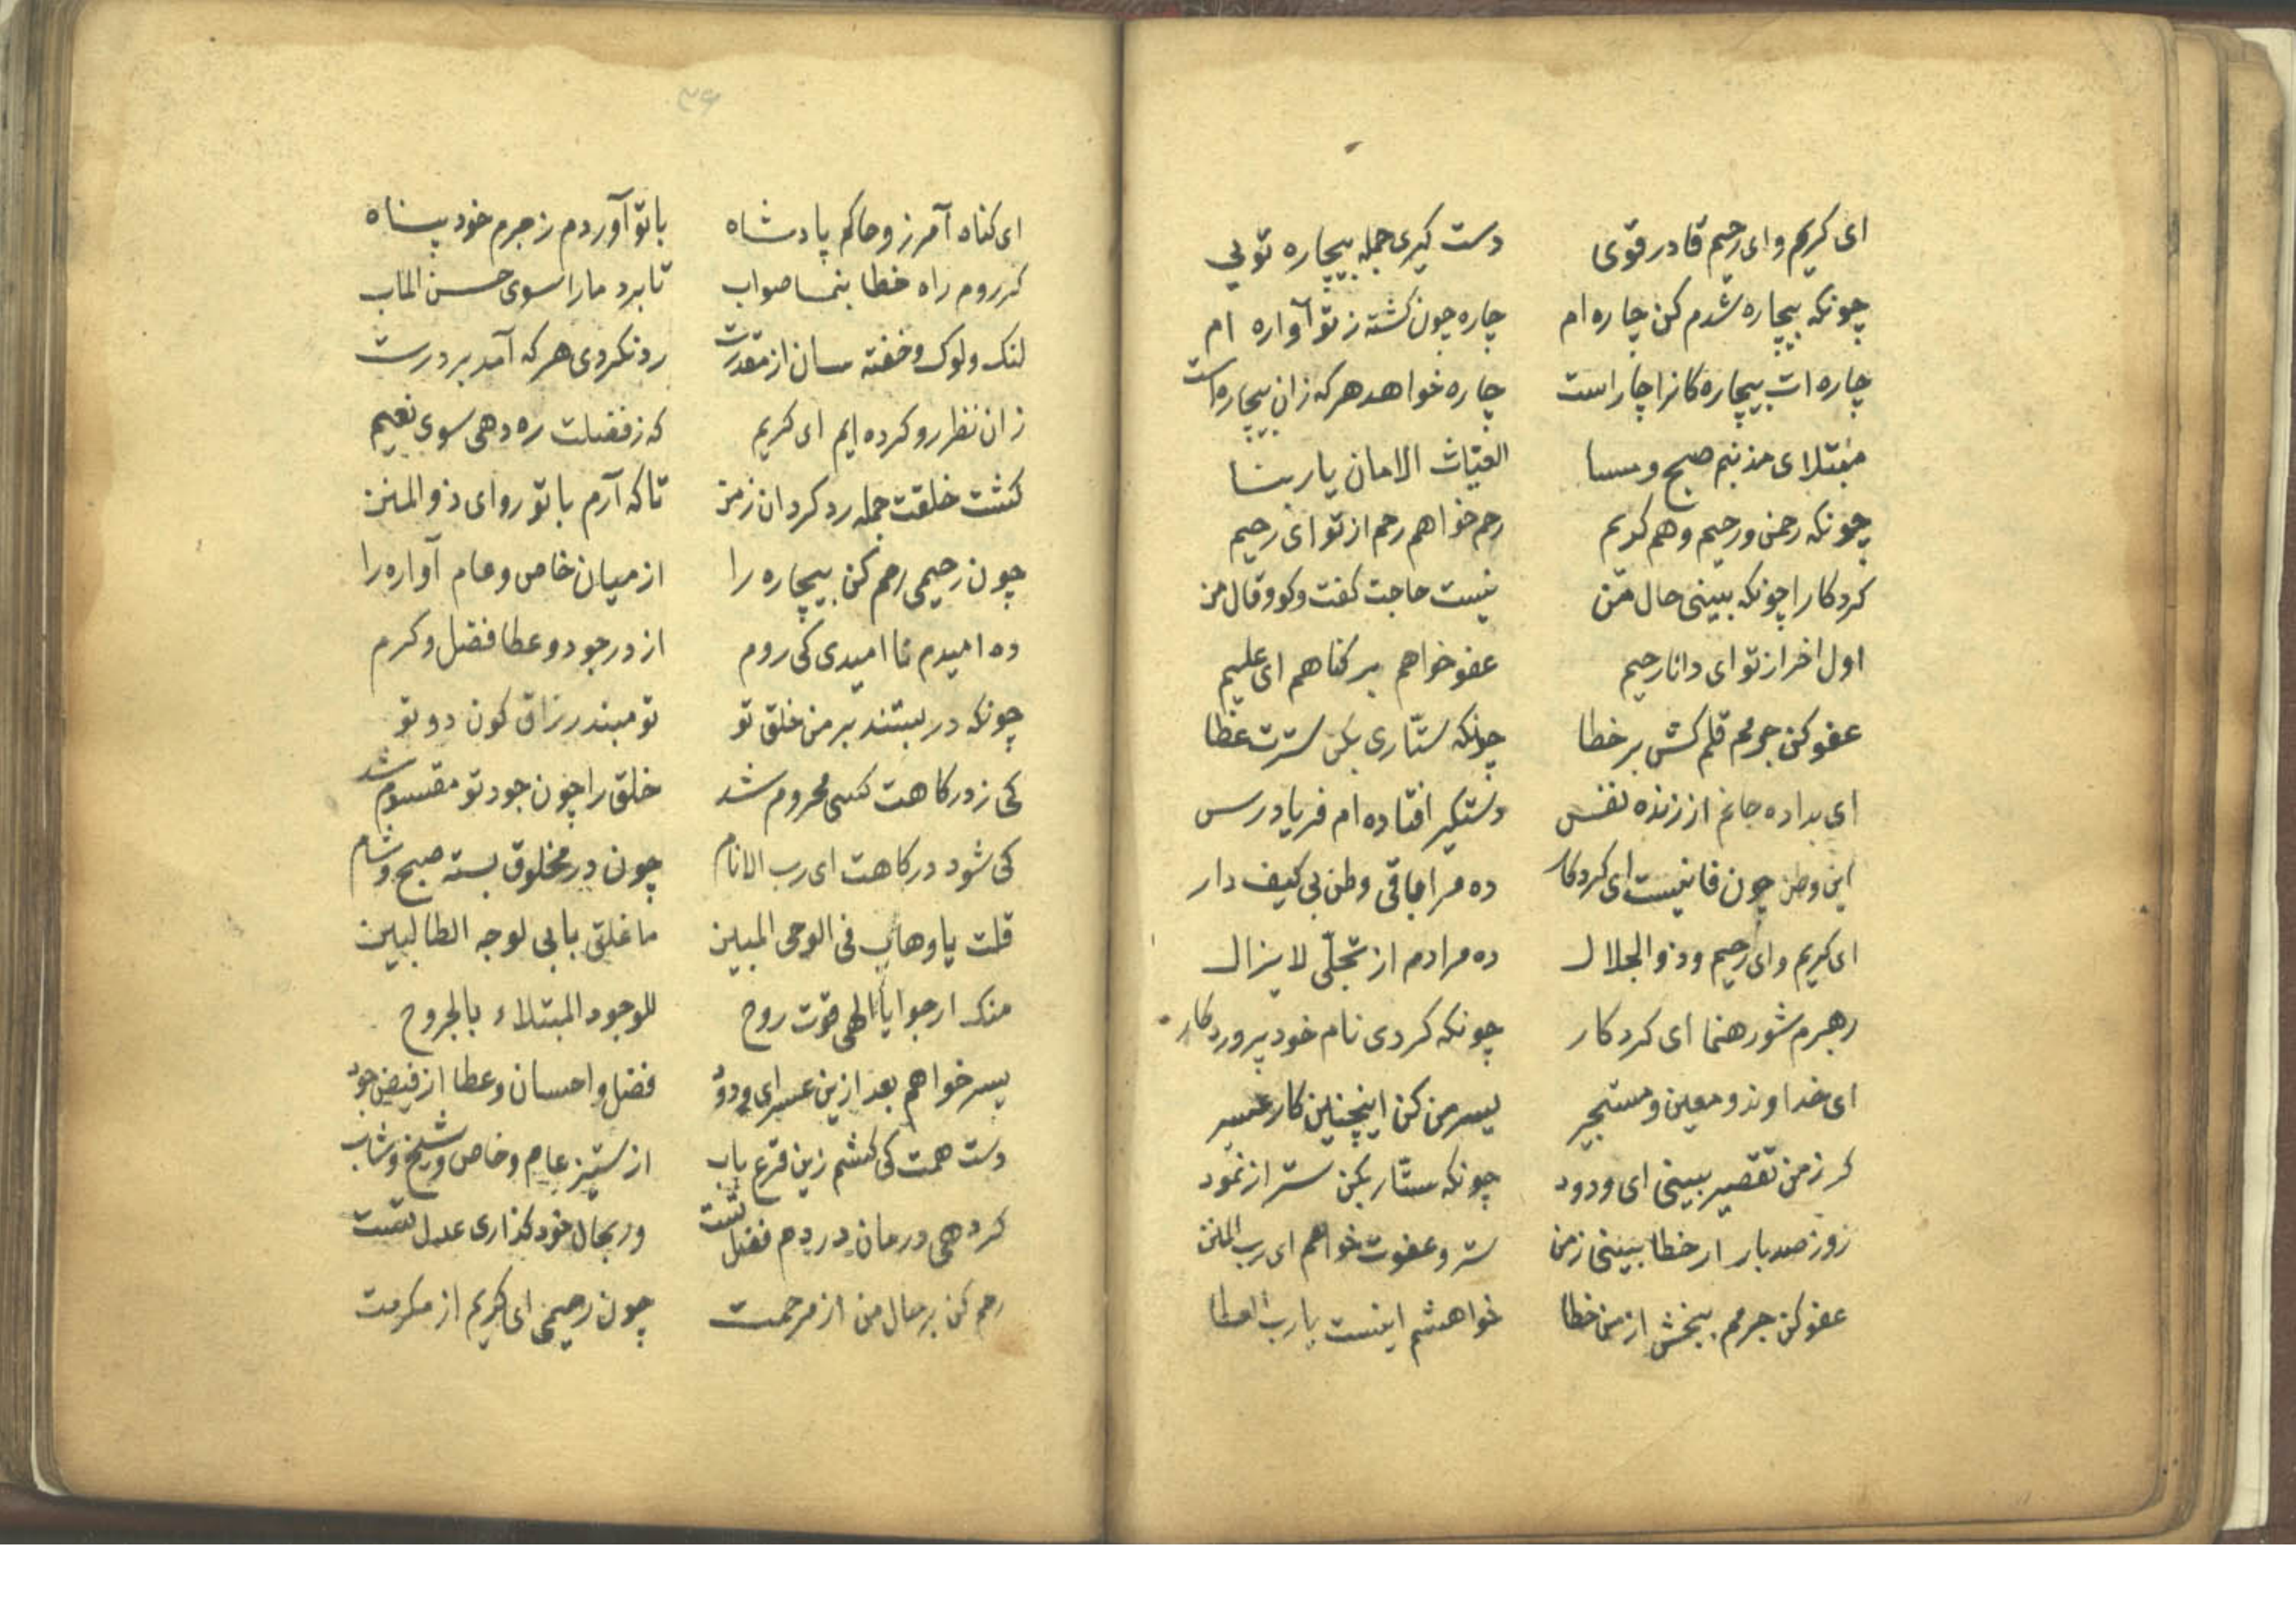 ای کریم و ای رحیم قادر قوی دست کیری جمله بیچاره تویی
چونکه بیچاره شدم کن چاره ام چاره چون کشته ز تو آواره ام
چاره ات بیچاره کانرا چاراست چاره خواهد هرکه زان بیچاره است
مبتلای مذنبم صبح و مسا الغیاث الامان یا ربنا
چونکه رحمن و رحیم و هم کریم رحم خواهم رحم از تو ای رحیم
کردکارا چونکه ببینی حال من نیست حاجت کفت وکو و قال من
اول اخر از تو ای دانا رحیم عفو خواهم بر کناهم ای علیم
عفو کن جرمم قلم کش بر خطا چونکه ستّاری بکن سترت عطا
ای بداده جانم از زنده نفس دستکیر افتاده ام فریاد رس
این وطن چون فانیست ای کردکار ده مرا باقی وطن بی کیف دار
ای کریم و ای رحیم و ذو الجلال ده مرادم از تجلّی لا یزال
رهبرم شو رهنما ای کردکار چونکه کردی نام خود پروردکار
ای خداوند و معین و مستجیر یسر من کن اینچنین کار عسیر
کر ز من تقصیر ببینی ای ودود چونکه ستّار بکن ستر از نمود
روز صد بار ار خطا ببینی ز من ستر و عفوت خواهم ای رب المنن
عفو کن جرمم ببخش از من خطا خواهشم اینست یا رب العطا
۳۶
ای کناه آمرز و حاکم پادشاه با تو آوردم ز جرم خود پناه
کر روم راه خطا بنما صواب تا برد مارا سوی حسن الماب
لنک و لوک و خفته سان از مقدرت رد نکردی هرکه آمد بر درت
زان نظر رو کرده ایم ای کریم که ز فضلت ره دهی سوی نعیم
کشت خلقت جمله رد کردان ز من تا که آرم با تو رو ای ذو المنن
چون رحیمی رحم کن بیچاره را از میان خاص و عام آواره را
ده امیدم نا امیدی کی روم از در جود و عطا فضل و کرم
چونکه در ببستند بر من خلق تو تو مبند در رزاق کون دو تو
کی ز درکاهت کسی محروم شد خلق را چون جود تو مقسوم شد
کی شود درکاهت ای رب الانام چون در مخلوق بسته صبح و شام
قلت یا وهاب فی الوحی المبین ما غلق بابی لوجه الطالبین
منک ارجوا یا الهی قوت روح للوجود المبتلاء بالجروح
یسر خواهم بعد ازین عسر ای ودود فضل و احسان و عطا از فیض جود
دست همت کی کشم زین قرع باب از ستیز عام و خاص و شیخ و شاب
کر دهی درمان دردم فضل تست ور بحال خود کذاری عدل تست
رحم کن بر حال من از مرحمت چون رحیمی ای کریم از مکرمت